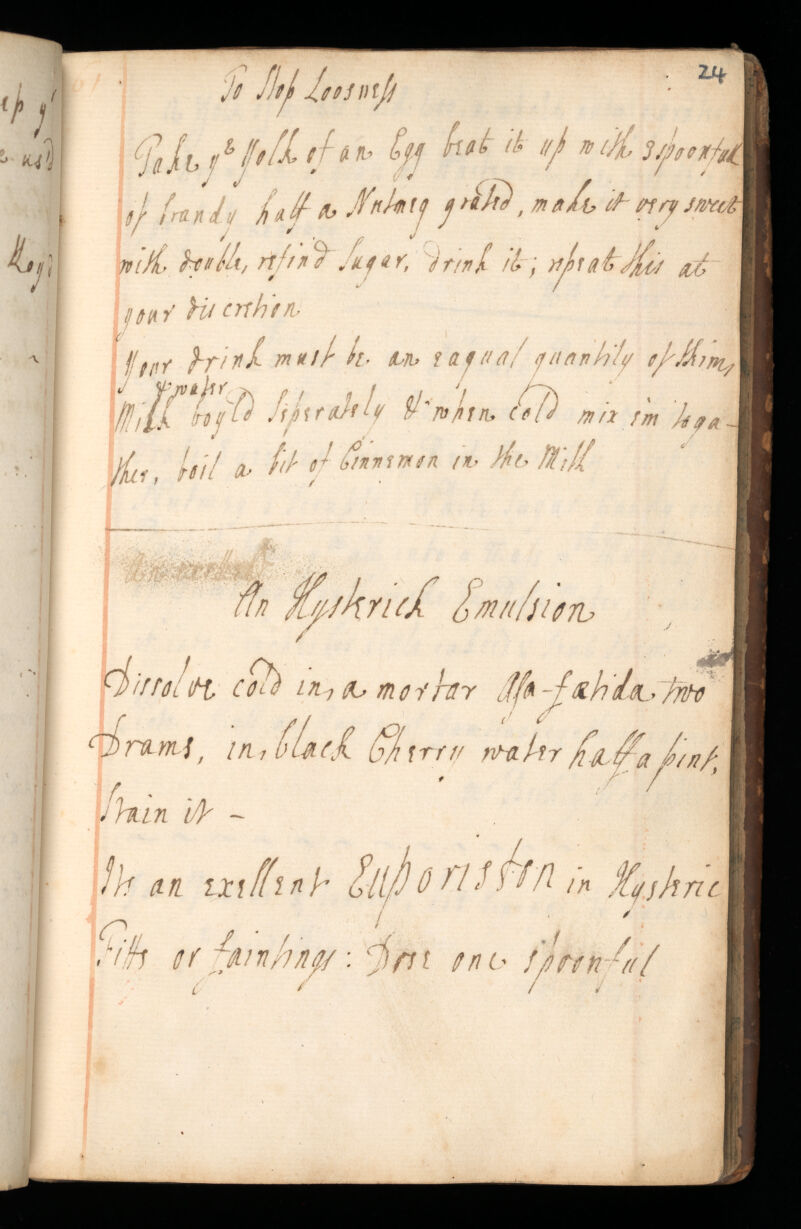 24
To Stop Loosness
Take yͤ Yolk of an Egg beat it up with 3 spoonfull
of brandy half a Nutmeg grated, make it very sweet
with double, refind Sugar, drink it; repeat this at
your discretion
Your drink must be an eaqual quantity of skim,
& water
Milk boyld Seperately & when cold mix em' toga-
ther, boil a bit of Cinnemon in the Milk
An
An Hysterick Emulsion
Dissolve cold in a mortar Asa-fœtida two
Drams, in black Cherry water half a pint,
Stain it -
Its an exellent Euporiston in Hysteric
Fitts or faintings: Dose one spoonful